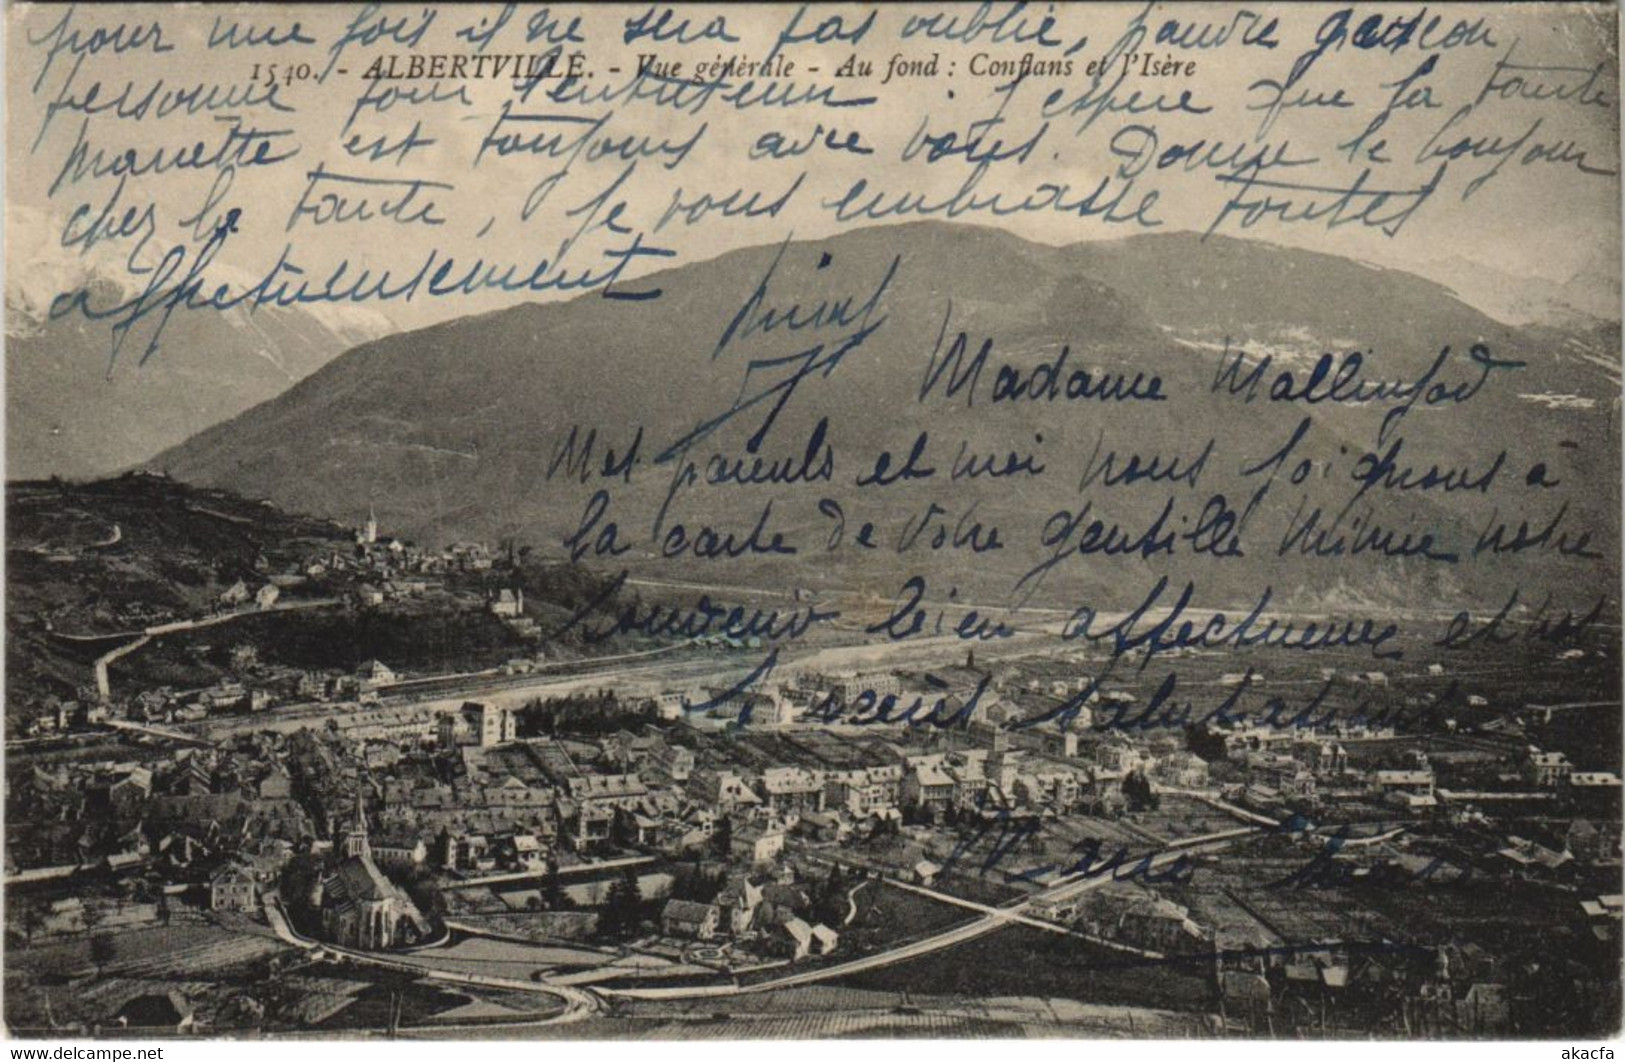 pour une fois il ne sera pas oublié, pauvre garçon
1540. - ALBERTVILLE. - Vue générale - Au fond : Conflans et l'Isère
personne pour l'entretenir. J'espère que la tante
Mariette est toujours avec vous. Donne le bonjour
chez la tante, je vous embrasse toutes
affectueusement
Mimi
Madame Mallinjod
Mes parents et moi nous joignons à
la carte de votre gentille Mimie notre
souvenir bien affectueux et nos
salutations
akacfa